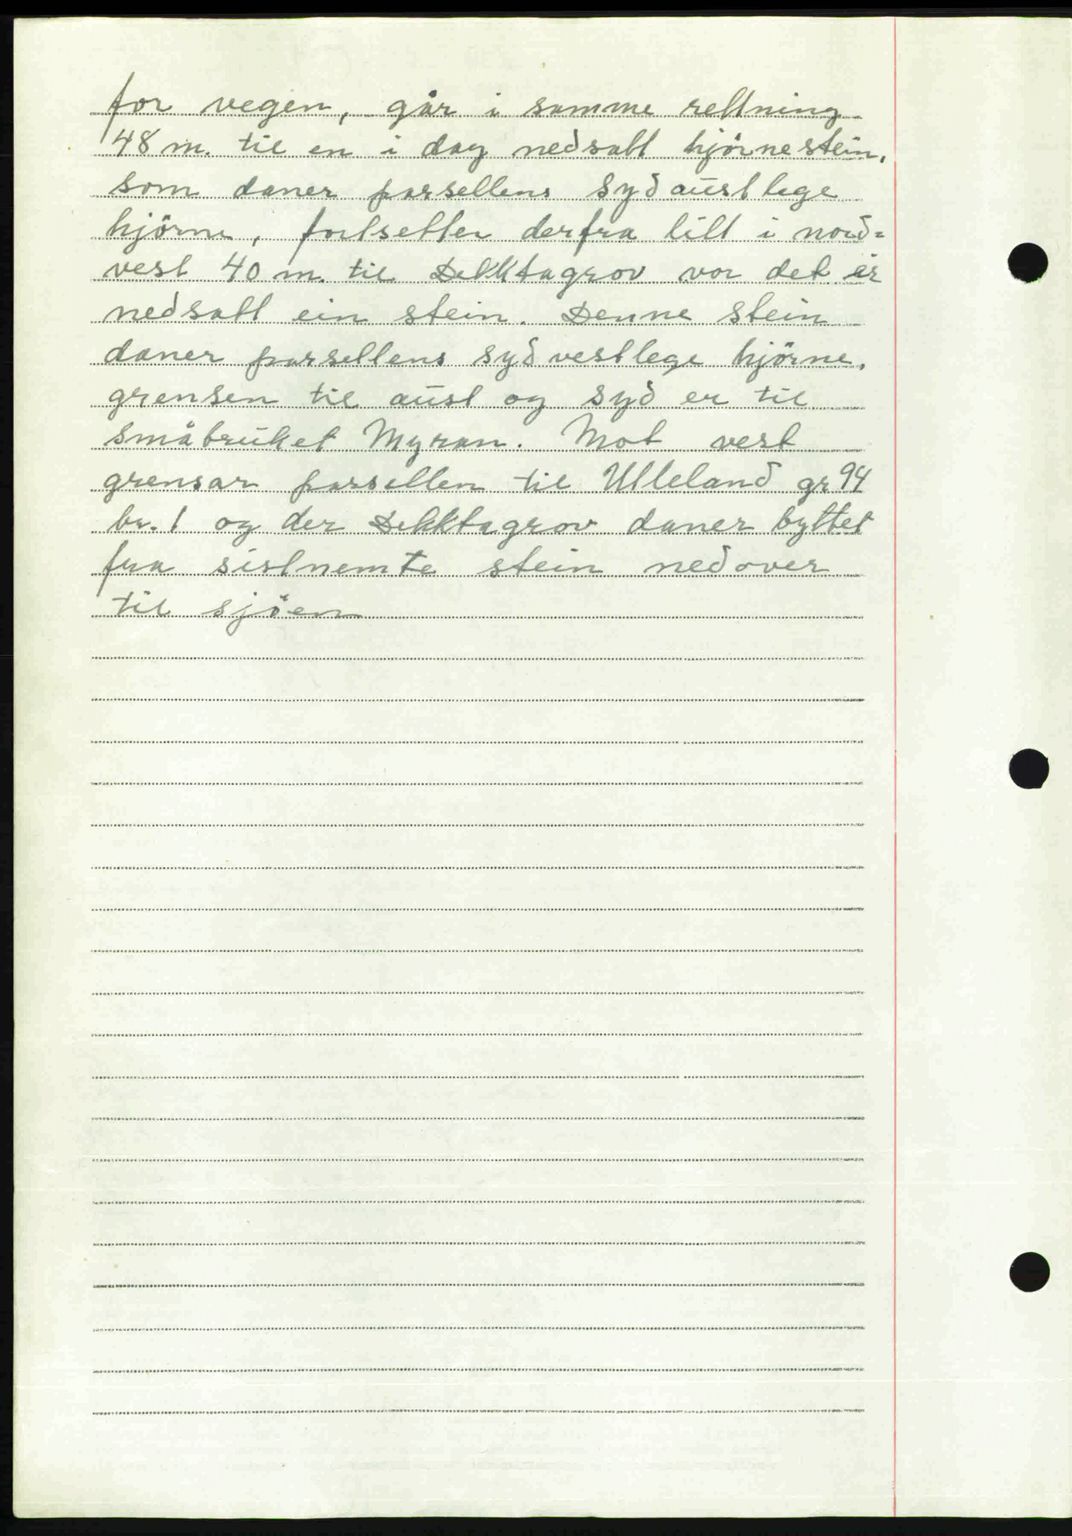 for vegen, går i samme rettning
48 m. til en i dag nedsatt hjörnestein,
som daner parsellens sydaustlege
hjörne, fortsetter derfra litt i nord-
vest 40 m. til Dekktagrov vor det er
nedsatt ein stein. Denne stein
daner parsellens sydvestlege hjörne,
grensen til aust og syd er til
småbruket Myran. Mot vest
grensar parsellen til Ulleland gr 94
br. 1 og der Dekktagrov daner byttet
fra sistnemte stein nedover
til sjöen